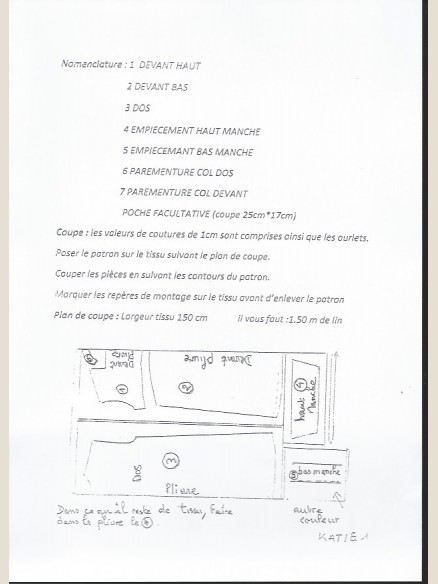 Nomenclature : 1 DEVANT HAUT
2 DEVANT BAS
3 DOS
4 EMPIECEMENT HAUT MANCHE
5 EMPIECEMANT BAS MANCHE
6 PAREMENTURE COL DOS
7 PAREMENTURE COL DEVANT
POCHE FACULTATIVE (coupe 25cm*17cm)
Coupe : les valeurs de coutures de 1cm sont comprises ainsi que les ourlets.
Poser le patron sur le tissu suivant le plan de coupe.
Couper les pièces en suivant les contours du patron.
Marquer les repères de montage sur le tissu avant d'enlever le patron
Plan de coupe : Largeur tissu 150 cm il vous faut :1.50 m de lin
Devant pliure
1
Devant pliure
2
haut manche
4
Dos
3
Pliure
bas manche
Dans ce qu'il reste de tissu, faire
dans la pliure le
autre
couleur
KATIE